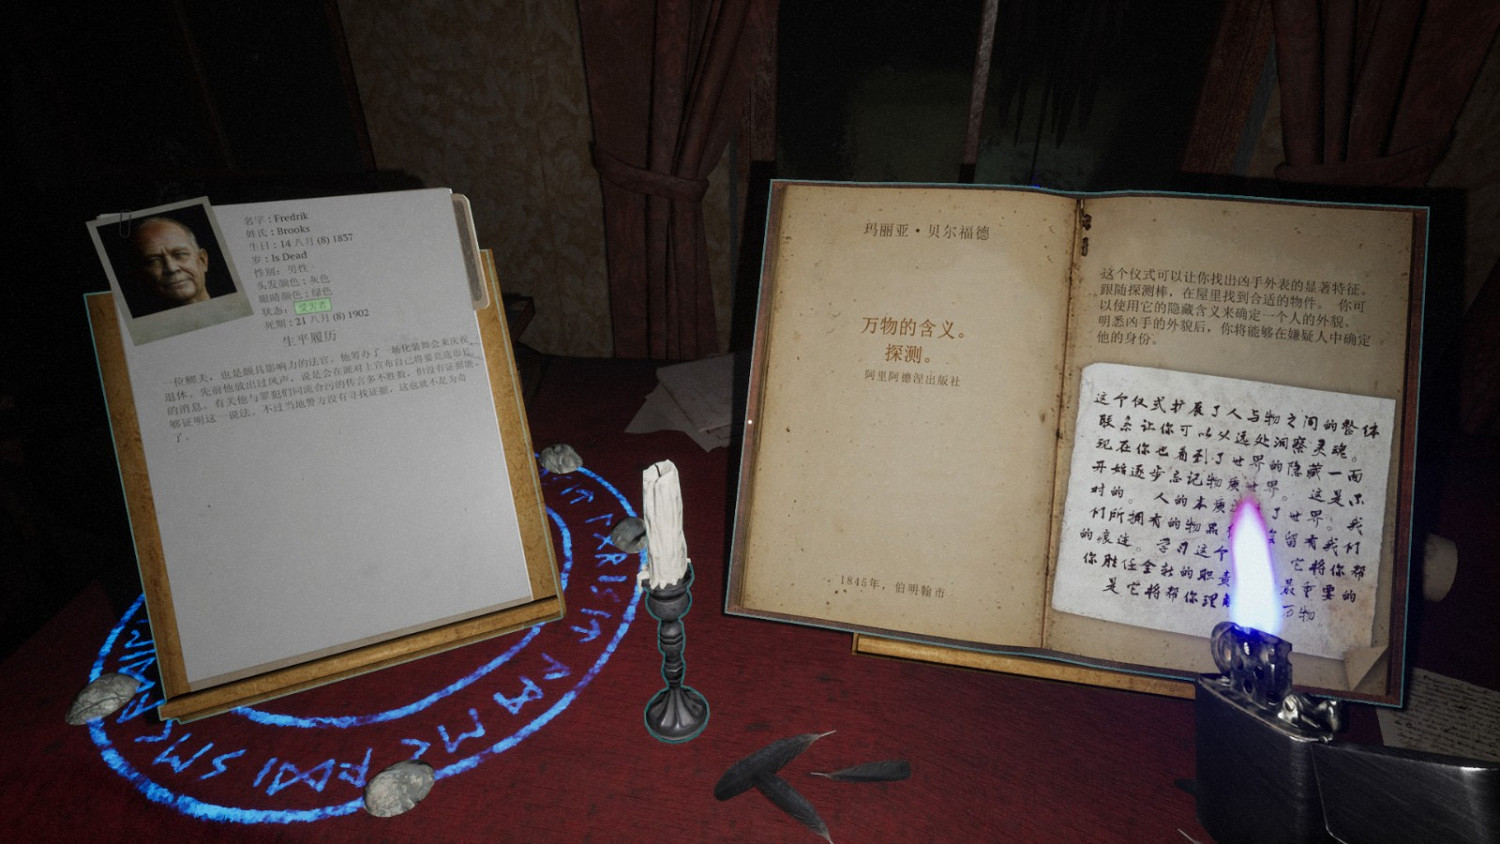 名字 : Fredrik
姓氏 : Brooks
生日 : 14 八月 (8) 1837
岁 : Is Dead
性别: 男性
头发颜色 : 灰色
眼睛颜色 : 绿色
状态: 受害者
死期 : 21 八月 (8) 1902
生平履历
一位鳏夫，也是颇具影响力的法官。他筹办了一场化装舞会来庆祝
退休。先前他放出过风声，说是会在派对上宣布自己将要竞选市长
的消息。有关他与罪犯们同流合污的传言多不胜数，但没有证据能
够证明这一说法。不过当地警方没有寻找证据，这也就不足为奇
了。
玛丽亚·贝尔福德
万物的含义。
探测。
阿里阿德涅出版社
1845年，伯明翰市
这个仪式可以让你找出凶手外表的显著特征。
跟随探测棒，在屋里找到合适的物件。 你可
以使用它的隐藏含义来确定一个人的外貌。
明悉凶手的外貌后，你将能够在嫌疑人中确定
他的身份。
这个仪式扩展了人与物之间的整体
联系让你可以从远处洞察灵魂。
现在你也看到了世界的隐藏一面
开始逐步忘记物质世界。 这是不
对的。 人的本质 了世界。我
们所拥有的物品 留有我们
的痕迹。 学习这个 它将你帮
你胜任全新的职责 最重要的
是它将帮你理解 万物